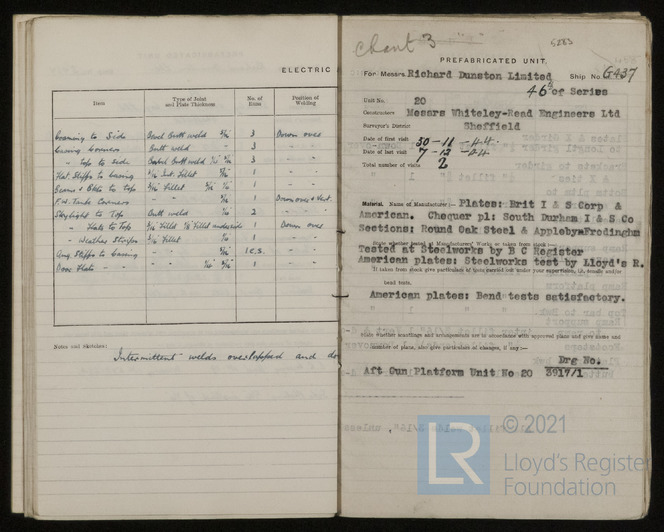 ELECTRIC
Item Type of Joint and Plate Thickness No. of Runs Position of Welding
Coaming to Side Bevel Butt weld 5/16 3 Down over
Casing Corners Butt weld - 3 - -
- Top to Side 3 - -
Flat Stiffs to Casing 1 - -
Beams & Bkts to Top Fillet 1 - -
F.W. Tank Corners - - 1 Down over & Vert.
Skylight to Top Butt weld 2 - -
- Flats to Top Fillet Fillet underside 1 Down over
- Weather Stiffs Fillet 1 - -
Ang Stiffs to Casing - - 1 E.S. - -
Door Flats - - 1 - -
Notes and Sketches:
Intermittent welds overlapped and do
Chant 3
5283
PREFABRICATED UNIT.
For Messrs Richard Dunston Limited Ship No. G437
46th of Series
Unit No. 20
Constructors Messrs Whiteley-Read Engineers Ltd
Surveyor's District Sheffield
Date of first visit 30-11-44.
Date of last visit 7-12-44
Total number of visits 2
Material. Name of Manufacturer:- Plates: Brit I & S Corp &
American. Chequer pl: South Durham I & S Co
Sections: Round Oak Steel & Appleby-Frodinghm
State whether tested at Manufacturers' Works or taken from stock:-
Tested at Steelworks by B C Register
American plates: Steelworks test by Lloyd's R.
If taken from stock give particulars of tests carried out under your supervision, i.e. tensile and/or
bend tests.
American plates: Bend tests satisfactory.
State whether scantlings and arrangements are in accordance with approved plans and give name and
number of plans, also give particulars of changes, if any:-
Drg No.
Aft Gun Platform Unit No 20 3917/1
© 2021
LR
Lloyd's Register
Foundation